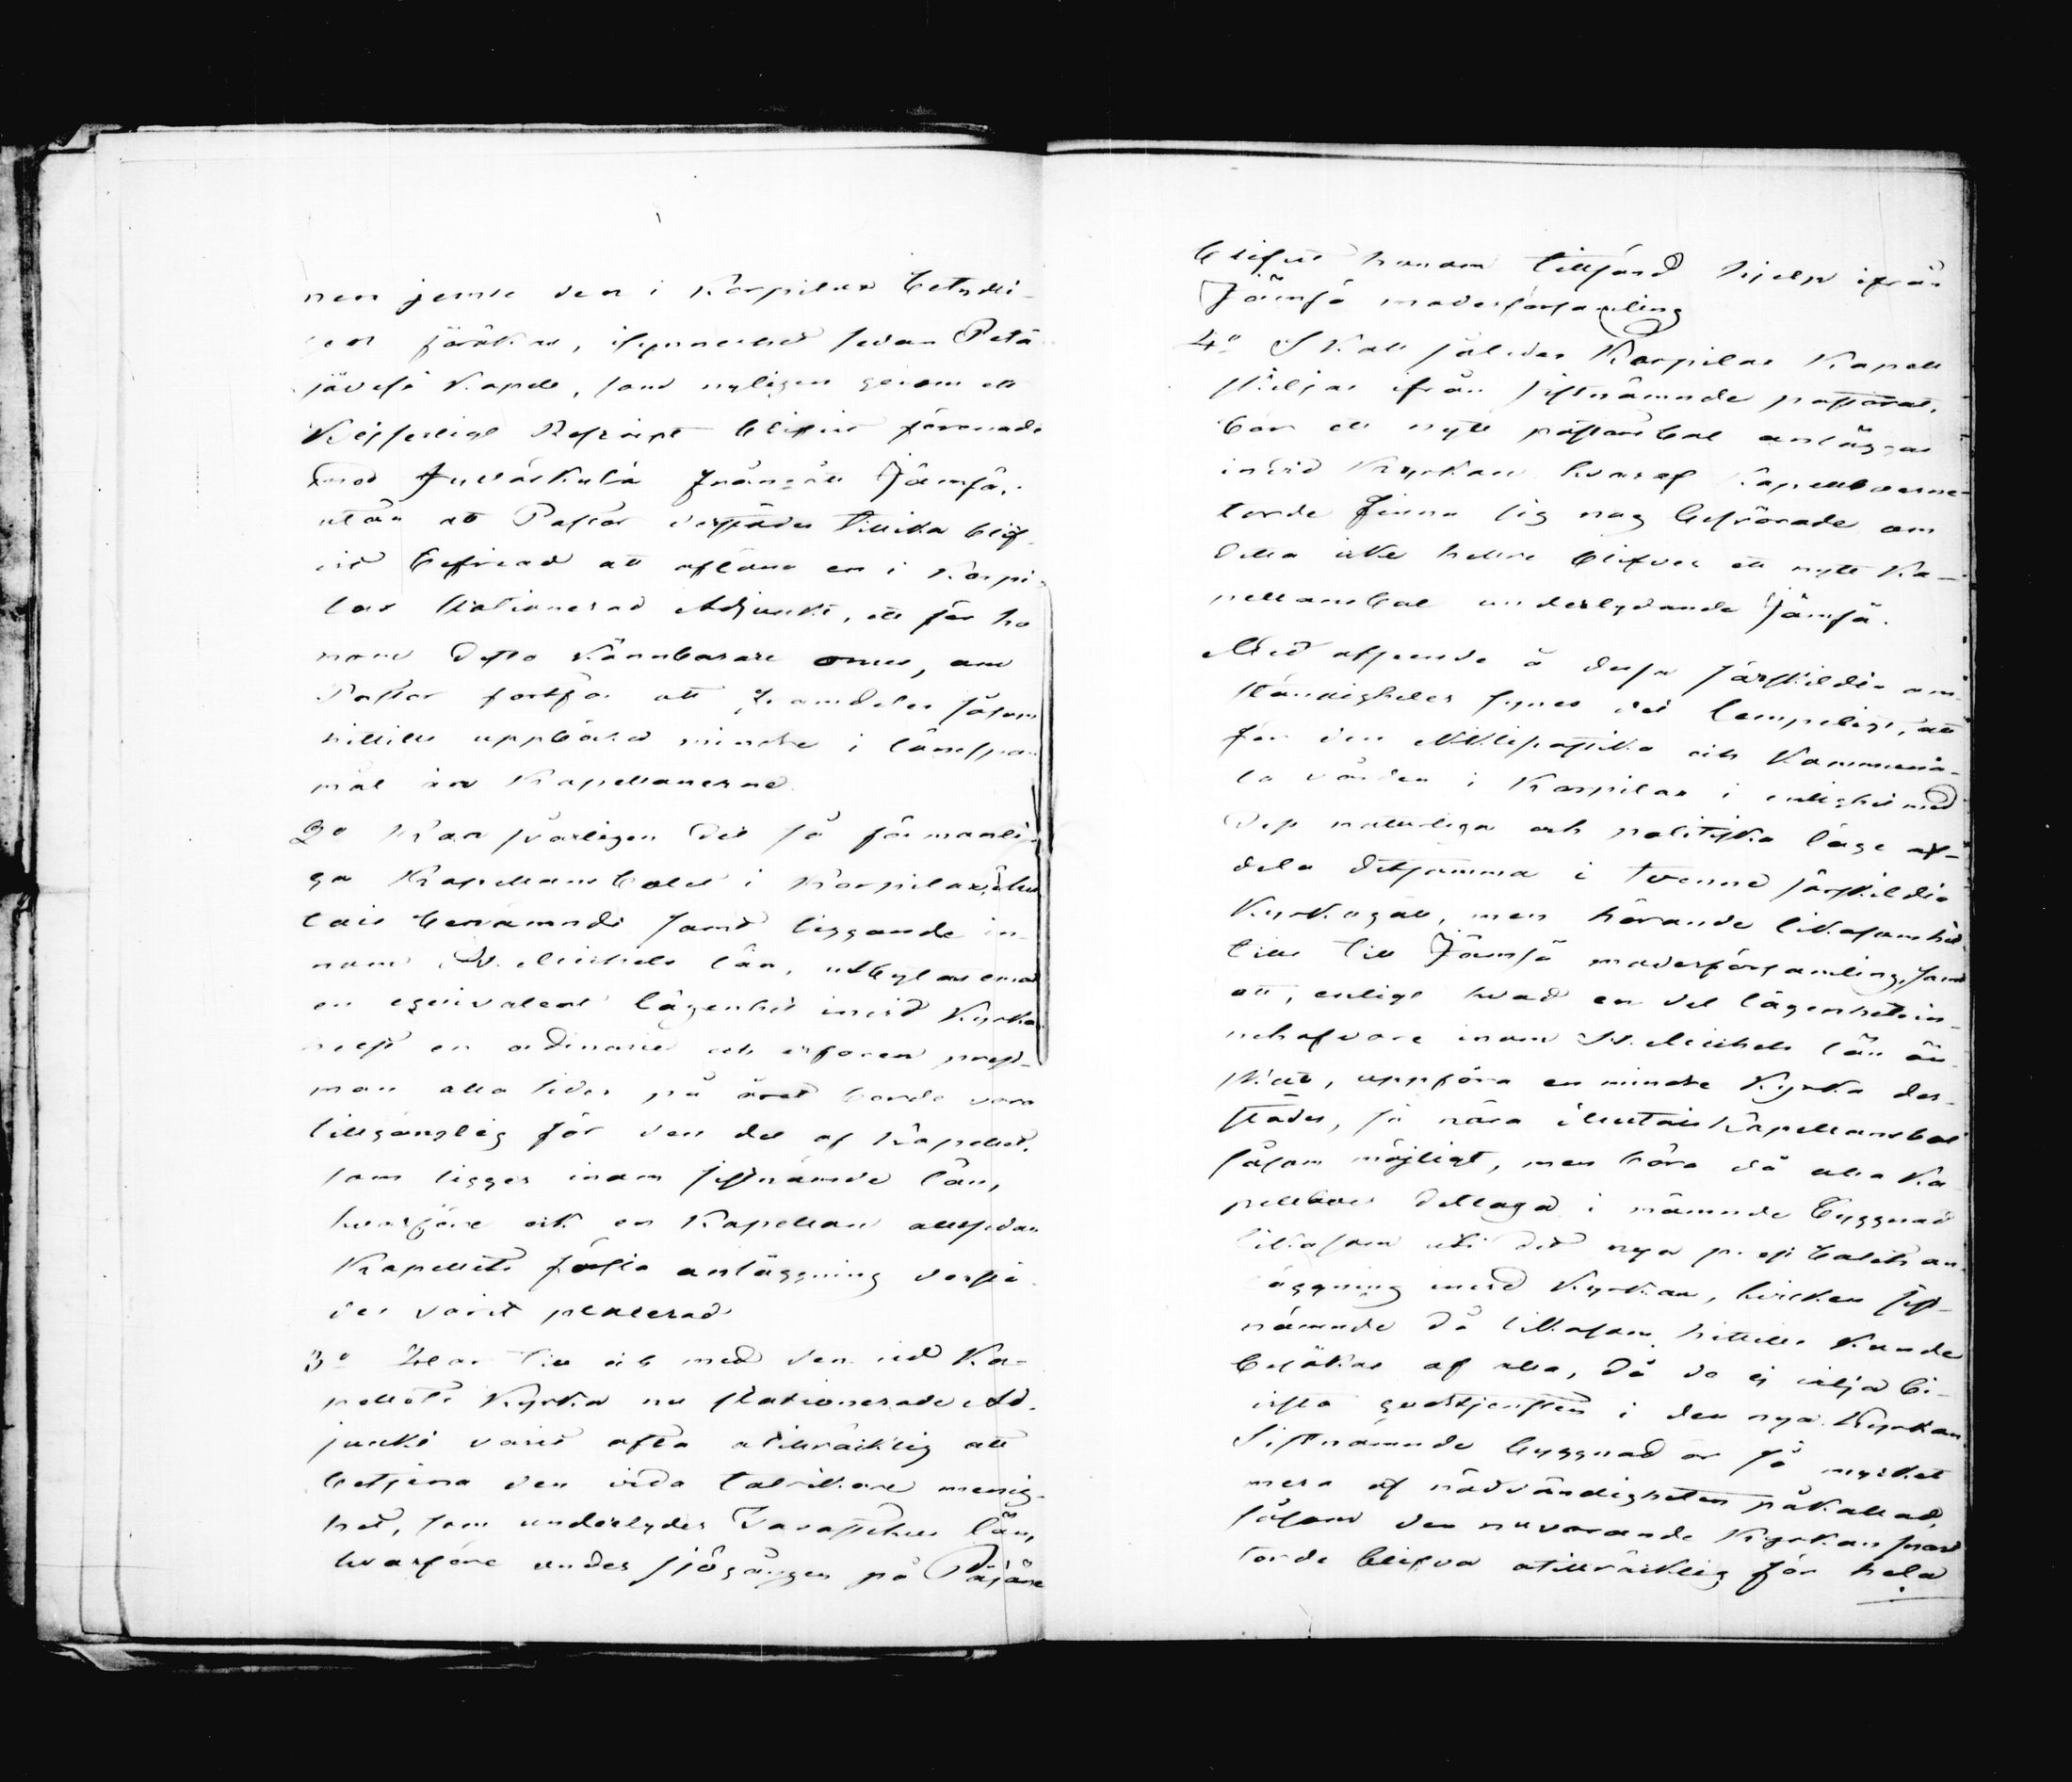 nen jemte den i Korpilax betydli-
gen förökas, isynnerhet sedan Petä-
jävesi Kapell, som nyligen genom ett
Kejserligt Rescript blifvit förenadt
med Jyväskylä frångått Jämsä,
utan att Pastor derstädes tillika blif-
vit befriad att aflöna en i Korpi-
lax stationerad Adjunkt, ett för ho
nom desto kännbarare onus, om
Pastor fortfar att framdeles såsom
hittills uppbära mindre i lönespan-
mål än Kapellanerne.
2o Kan svårligen det så förmånli-
ga Kapellansbolet i Korpilax,
benämndt samt liggande in-
nom St. Michels län, utbytas emot
en equivalent lägenhet invid Kyrkan
helst en ordinarie och erfaren prest-
man alla tider på året borde vara
tillgänglig för den del af Kapellet,
som ligger inom sistnämde län,
hvarföre ock en Kapellan allt sedan
Kapellets första anläggning derstä-
des varit placerad
3o Har till och med den vid Ka-
pellets Kyrka nu stationerade Ad-
junkt varit ofta otillräcklig att
betjena den vida talrikare menig-
het, som underlyder Tavastehus län,
hvarföre under sjögången på Päijäne
blifvit honom tillsänd hjelp ifrån
Jämsä moderförsamling
4o Skall således Korpilax Kapell
skiljas ifrån sistnämnde pastorat,
bör ett nytt pastorsbol anläggas
invid Kyrkan hvaraf Kapellboerne
torde finna sig nog besvärade om
detta icke hellre blifver ett nytt Ka-
pellansbol underlydande Jämsä.
Med afseende å dessa särskildta om-
ständigheter synes det lempeligt, att
för den ecklesiastika och Kommuna-
la vården i Korpilax i enlighet med
dess naturliga och politiska läge af-
dela detsamma i tvenne särskildta
Kyrkogäll, men hörande likasom hit-
tills till Jämsä moderförsamling, samt
att, enligt hvad en del lägenhetsin-
nehafvare inom St. Michels län ön-
skat, uppföra en mindre Kyrka der-
städes, så nära Kapellansbol
såsom möjligt, men böra då alla Ka-
pellboer deltaga i nämnde byggnad
likasom uti det nya prestbolets an-
läggning invid Kyrkan, hvilken sist-
nämnde då likasom hittills kunde
besökas af alla, då de ej vilja bi-
vista gudstjensten i den nya Kyrkan.
Sistnämnde byggnad är så mycket
mera af nödvändigheten påkallad,
såsom den nuvarande Kyrkan snart
torde blifva otillräcklig för hela